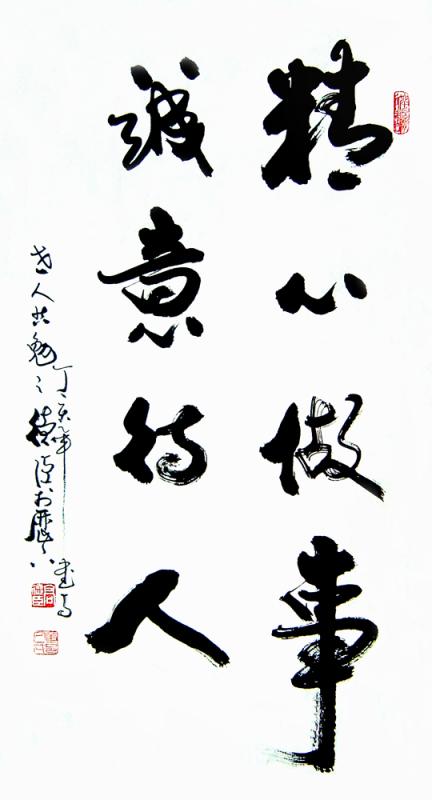 精心做事
诚意待人
世人共勉之
丁亥年